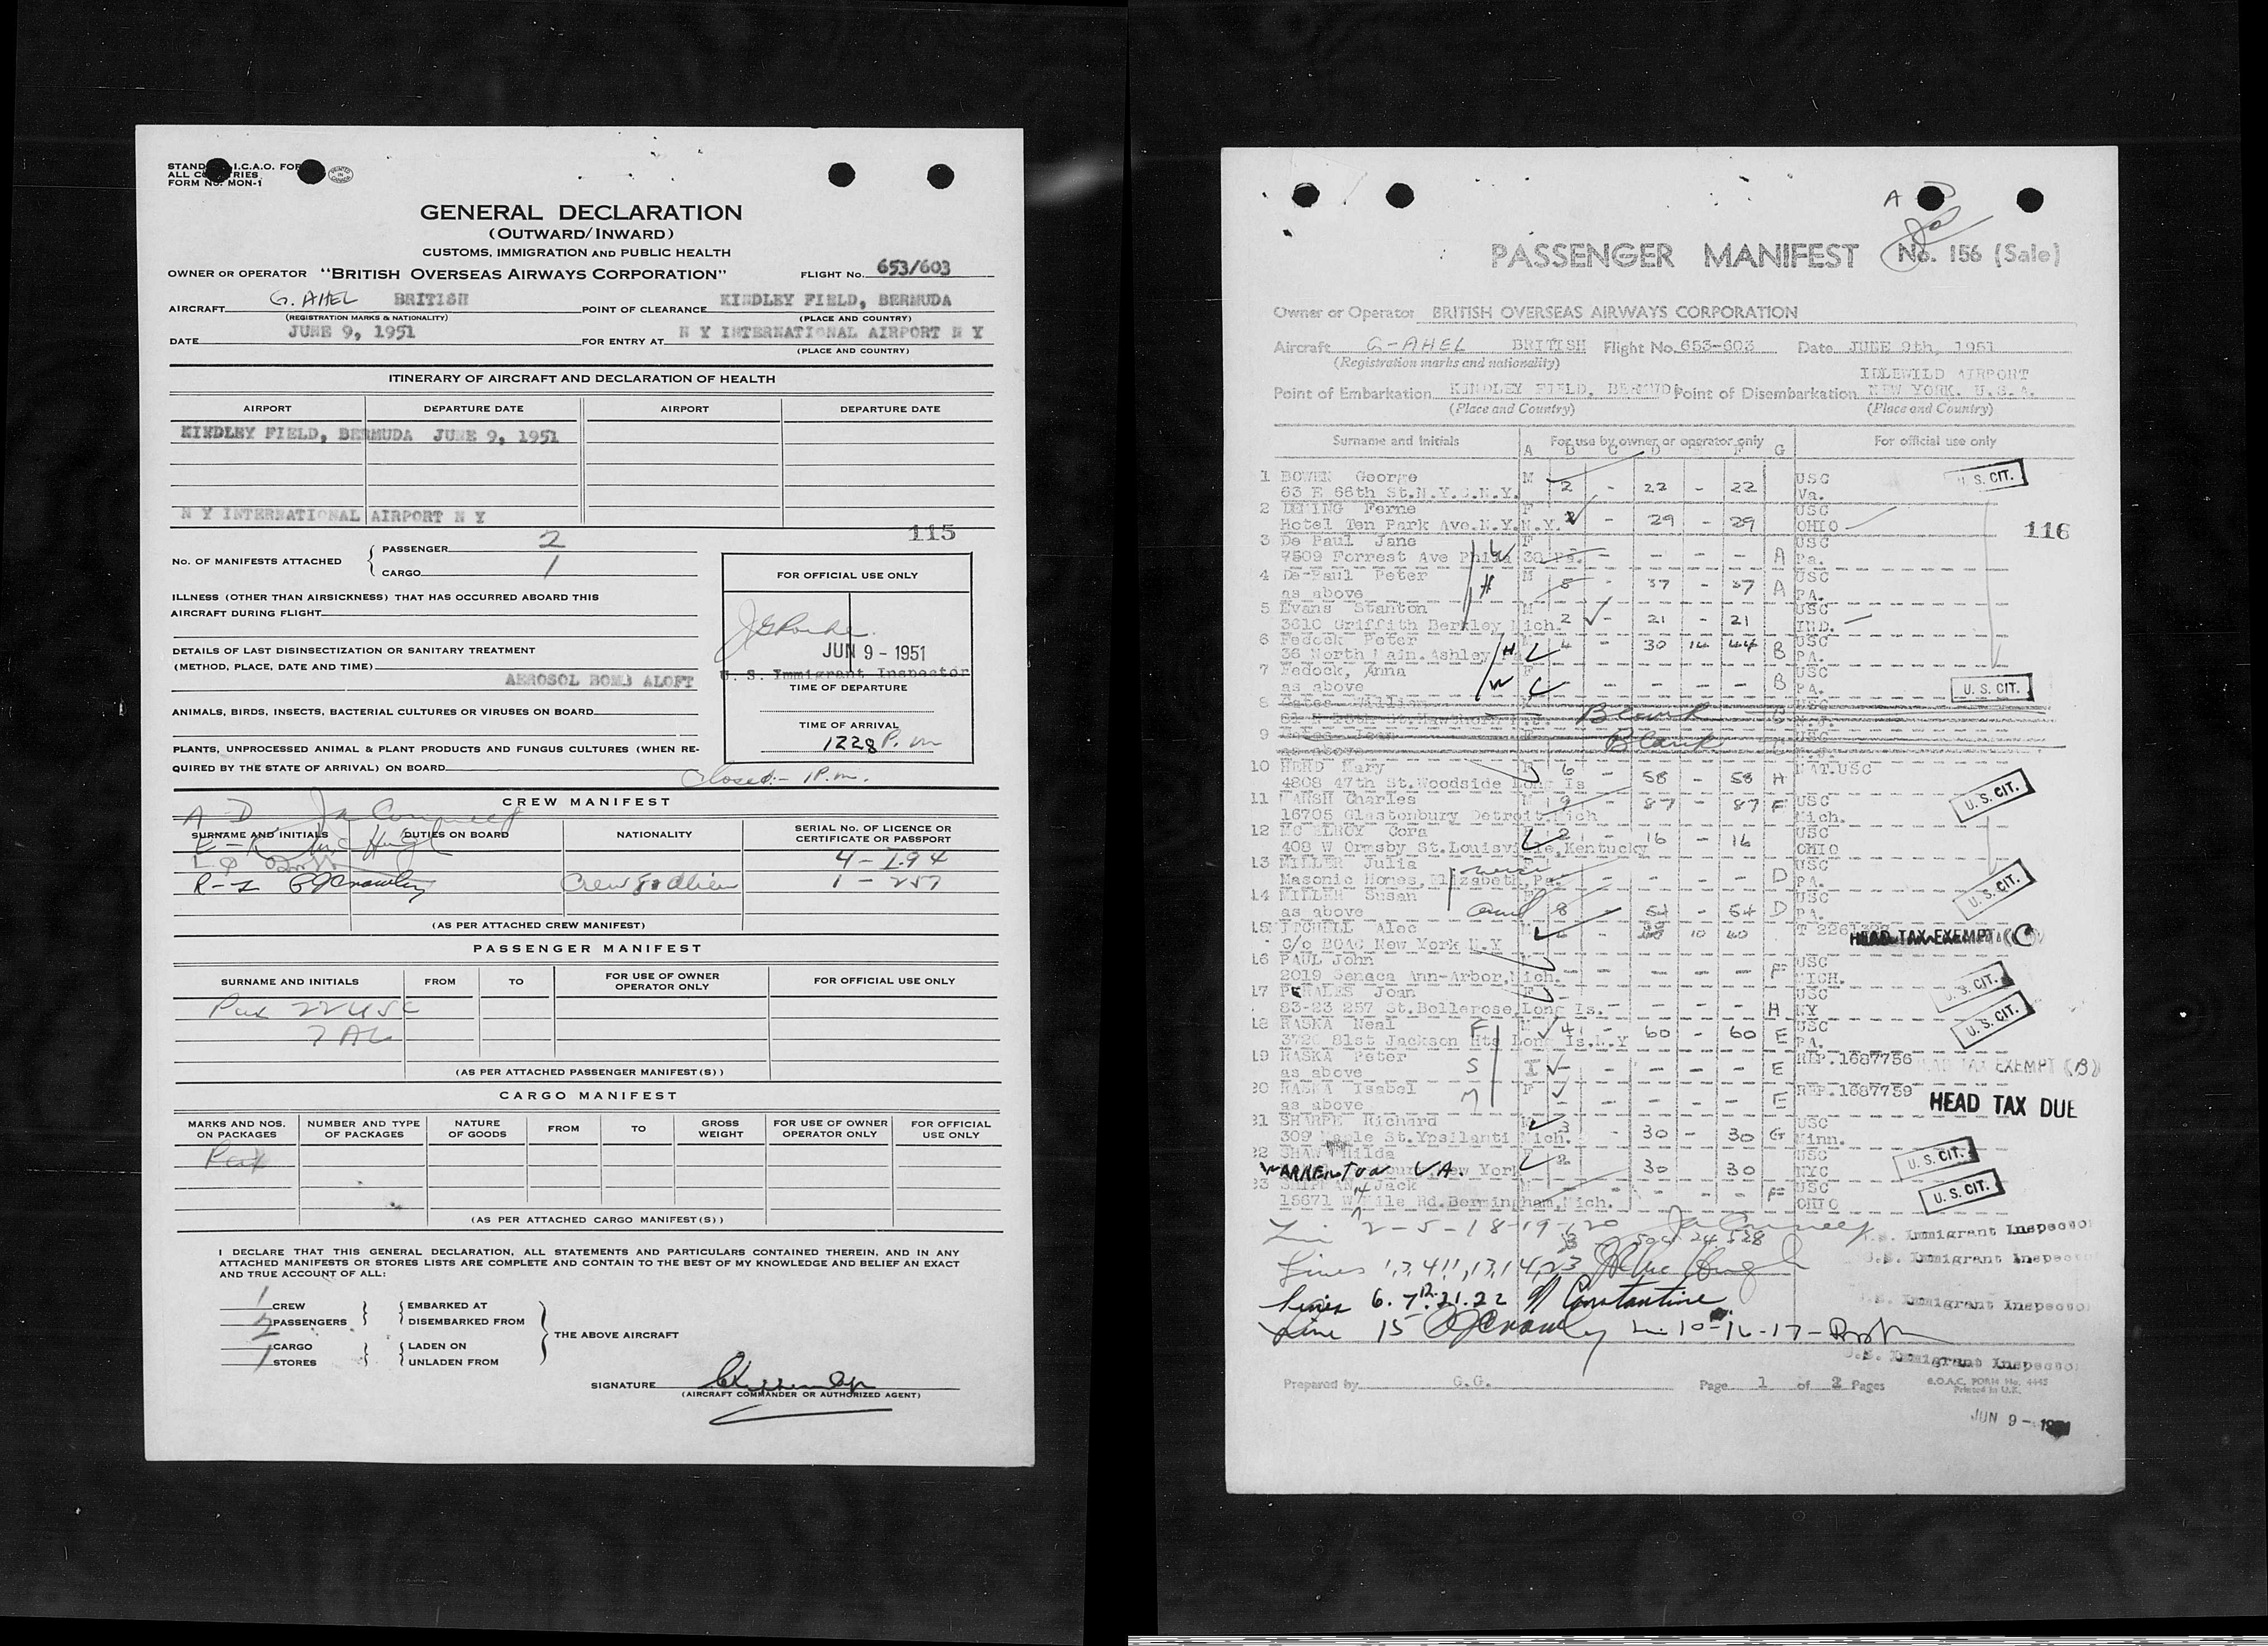 STAND I.C.A.O. FOR
ALL C TRIES
FORM No. MON-1
PRINTED IN CANADA
GENERAL DECLARATION
(OUTWARD/INWARD)
CUSTOMS, IMMIGRATION AND PUBLIC HEALTH
OWNER OR OPERATOR "BRITISH OVERSEAS AIRWAYS CORPORATION" FLIGHT No. 653/603
AIRCRAFT G. AHEL BRITISH POINT OF CLEARANCE KINDLEY FIELD, BERMUDA
(REGISTRATION MARKS & NATIONALITY) (PLACE AND COUNTRY)
DATE JUNE 9, 1951 FOR ENTRY AT N Y INTERNATIONAL AIRPORT N Y
(PLACE AND COUNTRY)
ITINERARY OF AIRCRAFT AND DECLARATION OF HEALTH
AIRPORT DEPARTURE DATE AIRPORT DEPARTURE DATE
KINDLEY FIELD, BERMUDA JUNE 9, 1951
N Y INTERNATIONAL AIRPORT N Y
115
No. OF MANIFESTS ATTACHED
PASSENGER 2
CARGO 1
ILLNESS (OTHER THAN AIRSICKNESS) THAT HAS OCCURRED ABOARD THIS
AIRCRAFT DURING FLIGHT
DETAILS OF LAST DISINSECTIZATION OR SANITARY TREATMENT
(METHOD, PLACE, DATE AND TIME)
AEROSOL BOMB ALOFT
ANIMALS, BIRDS, INSECTS, BACTERIAL CULTURES OR VIRUSES ON BOARD
PLANTS, UNPROCESSED ANIMAL & PLANT PRODUCTS AND FUNGUS CULTURES (WHEN RE-
QUIRED BY THE STATE OF ARRIVAL) ON BOARD
FOR OFFICIAL USE ONLY
JUN 9 - 1951
U. S. Immigrant Inspector
TIME OF DEPARTURE
TIME OF ARRIVAL
1228 P. m
Closed:- 1 P.m.
CREW MANIFEST
A D
SURNAME AND INITIALS DUTIES ON BOARD NATIONALITY SERIAL No. OF LICENCE OR
CERTIFICATE OR PASSPORT
E - K Mc Hugh
4 - I.94
R - I Crew 8 alien 1 - 257
(AS PER ATTACHED CREW MANIFEST)
PASSENGER MANIFEST
SURNAME AND INITIALS FROM TO FOR USE OF OWNER
OPERATOR ONLY FOR OFFICIAL USE ONLY
Pax 22 USC
7 AL
(AS PER ATTACHED PASSENGER MANIFEST(S))
CARGO MANIFEST
MARKS AND NOS.
ON PACKAGES NUMBER AND TYPE
OF PACKAGES NATURE
OF GOODS FROM TO GROSS
WEIGHT FOR USE OF OWNER
OPERATOR ONLY FOR OFFICIAL
USE ONLY
(AS PER ATTACHED CARGO MANIFEST(S))
I DECLARE THAT THIS GENERAL DECLARATION, ALL STATEMENTS AND PARTICULARS CONTAINED THEREIN, AND IN ANY
ATTACHED MANIFESTS OR STORES LISTS ARE COMPLETE AND CONTAIN TO THE BEST OF MY KNOWLEDGE AND BELIEF AN EXACT
AND TRUE ACCOUNT OF ALL:
1 CREW
2 PASSENGERS
CARGO
1 STORES
EMBARKED AT
DISEMBARKED FROM
LADEN ON
UNLADEN FROM
THE ABOVE AIRCRAFT
SIGNATURE
(AIRCRAFT COMMANDER OR AUTHORIZED AGENT)
A
PASSENGER MANIFEST No. 156 (Sale)
Owner or Operator BRITISH OVERSEAS AIRWAYS CORPORATION
Aircraft G-AHEL BRITISH Flight No. 653-603 Date JUNE 9th, 1951
(Registration marks and nationality)
IDLEWILD AIRPORT
Point of Embarkation KINDLEY FIELD, BERMUD Point of Disembarkation NEW YORK. U.S.A.
(Place and Country) (Place and Country)
Surname and Initials For use by owner or operator only For official use only
A B C D F G
1 BOWEN George M 2 - 22 - 22 USC
63 E 66th St.N.Y.C.N.Y. Va.
U. S. CIT.
2 DEMING Ferne F 2 - 29 - 29 USC
Hotel Ten Park Ave.N.Y.N.Y. OHIO
116
3 De Paul Jane F W - - - - A USC
7509 Forrest Ave Phila 38 Pa. Pa.
4 De-Paul Peter M H 5 - 37 - 37 A USC
as above PA.
5 Evans Stanton M 2 - 21 - 21 USC
3610 Griffith Berkley Mich. IND.
6 Fedock Peter M H 4 - 30 14 44 B USC
36 North Main.Ashley Pa PA.
7 Fedock, Anna F W - - - - B USC
as above PA.
U. S. CIT.
8 Gates William Blank C USC
9 Blank USC
as above
10 HERD Mary F 6 - 58 - 58 H NAT.USC
4808 47th St.Woodside Long Is
11 MARSH Charles M 9 - 87 - 87 F USC
16705 Glastonbury Detroit Mich Mich.
U. S. CIT.
12 MC ELROY Cora 2 - 16 - 16 USC
408 W Ormsby St.Louisville,Kentucky OHIO
13 MILLER Julia F niece - - - - D USC
Masonic Homes,Elizabeth,Pa. PA.
14 MILLER Susan F aunt 8 - 54 - 54 D USC
as above PA.
U. S. CIT.
15 MITCHELL Alec M 10 60
C/o BOAC New York N.Y
HEAD TAX EXEMPT (C)
16 PAUL John - - - - F USC
2019 Senaca Ann-Arbor,Mich. MICH.
U. S. CIT.
17 PERALES Joan F - - - - H USC
83-23 257 St.Bellerose,Long Is. NY
U. S. CIT.
18 RASKA Neal F M 4 - 60 - 60 E USC
3720 81st Jackson Hts Long Is.N.Y PA.
19 RASKA Peter S - - - - E REP.1687756
as above
HEAD TAX EXEMPT (B)
20 RASKA Isabel M F - - - - E REP.1687759
as above
HEAD TAX DUE
21 SHARPE Richard M 3 - 30 - 30 G USC
309 Maple St.Ypsilanti Mich. Minn.
22 SHAW Hilda F 2 30 30 USC
WARRENTON VA. New York NYC
U. S. CIT.
23 SHIPMAN Jack M - - - - F USC
15671 W 14 Mile Rd.Bermingham,Mich. OHIO
U. S. CIT.
Lin 2 - 5 - 18 - 19 - 20
U.S. Immigrant Inspector
Lines 1,3,4,11,13,14,23
U.S. Immigrant Inspector
Lines 6. 7. 12. 21. 22 Constantine
U.S. Immigrant Inspector
Line 15 Li 10-16-17-
U.S. Immigrant Inspector
Prepared by G.G. Page 1 of 2 Pages B.O.A.C. FORM No. 4445
Printed in U.K.
JUN 9 - 1951